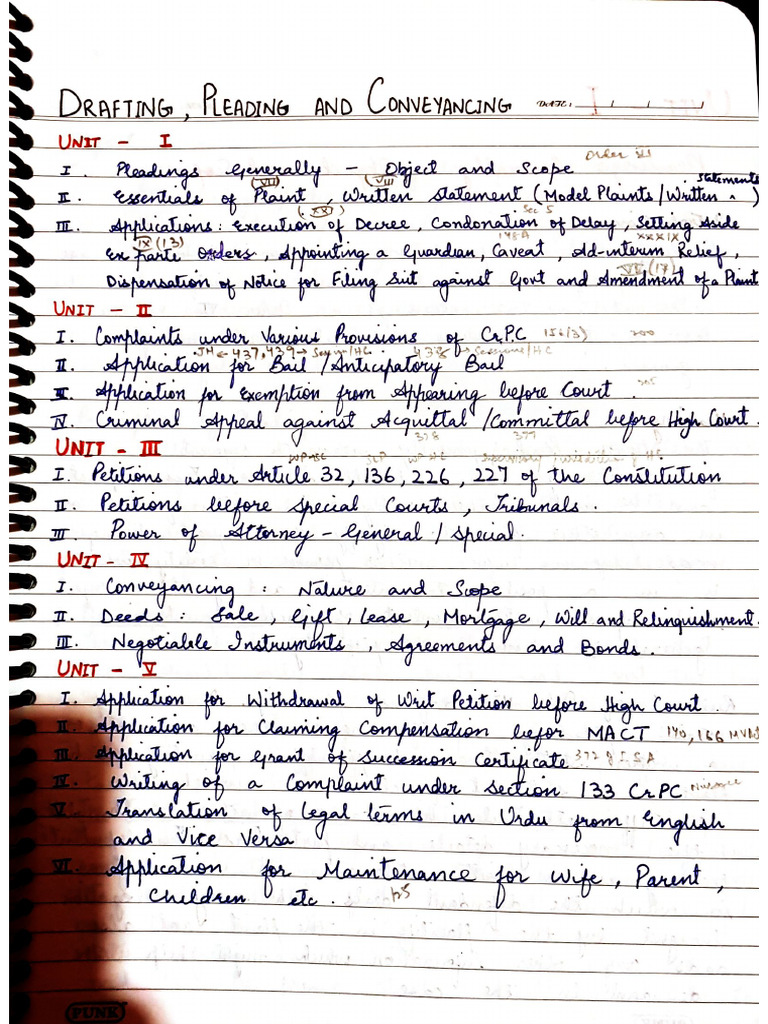 DRAFTING, PLEADING AND CONVEYANCING DATE:
UNIT - I
Order VI
I. Pleadings Generally - Object and Scope
(VII) (VIII) Statements
II. Essentials of Plaint, Written Statement (Model Plaints/Written ^)
(XX) Sec 5
III. Applications: Execution of Decree, Condonation of Delay, Setting Aside
IX (13) 148A XXXIX
Ex parte Orders, Appointing a Guardian, Caveat, Ad-interim Relief,
VI (17)
Dispensation of Notice for Filing Suit against Govt and Amendment of a Plaint
UNIT - II
I. Complaints under Various Provisions of Cr.P.C 156(3) 200
JM ← 437, 439 → Session/HC 438 → Sessions/HC
II. Application for Bail / Anticipatory Bail
III. Application for Exemption from Appearing before Court. 205
IV. Criminal Appeal against Acquittal /Committal before High Court.
378 377
UNIT - III
WP-SC SLP WP-HC HC
I. Petitions under Article 32, 136, 226, 227 of the Constitution
II. Petitions before Special Courts, Tribunals.
III. Power of Attorney - General / Special.
UNIT - IV
I. Conveyancing: Nature and Scope
II. Deeds: Sale, Gift, Lease, Mortgage, Will and Relinquishment.
III. Negotiable Instruments, Agreements and Bonds.
UNIT - V
I. Application for Withdrawal of Writ Petition before High Court.
II. Application for Claiming Compensation befor MACT 140, 166 MVA
III. Application for Grant of Succession Certificate 372 of I.S.A
IV. Writing of a Complaint under Section 133 Cr.PC Nuisance
V. Translation of Legal terms in Urdu from English
and Vice Versa
VI. Application for Maintenance for Wife, Parent,
Children etc. 125
PUNK